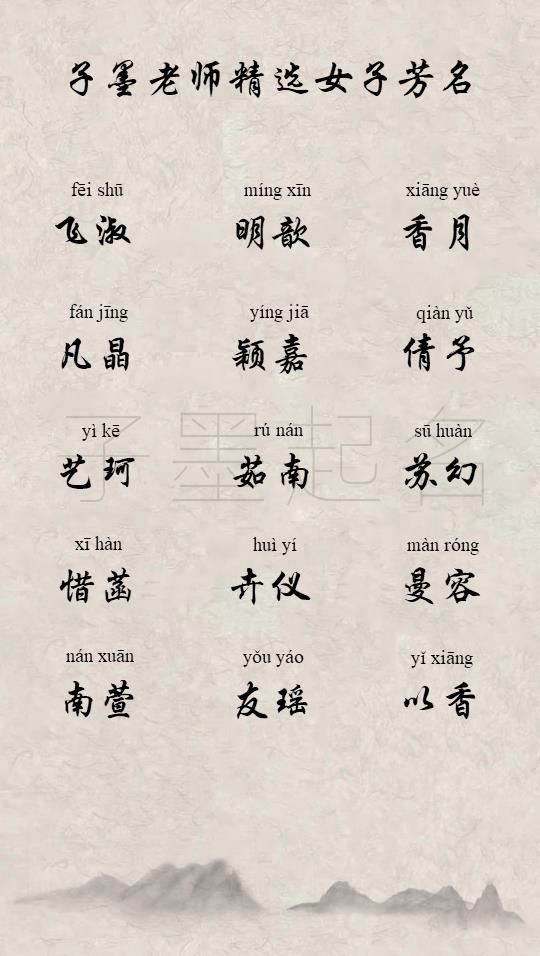 子墨老师精选女子芳名
fēi shū míng xīn xiāng yuè
飞淑 明歆 香月
fán jīng yíng jiā qiàn yǔ
凡晶 颖嘉 倩予
yì kē rú nán sū huàn
艺珂 茹南 苏幻
子墨起名
xī hàn huì yí màn róng
惜菡 卉仪 曼容
nán xuān yǒu yáo yǐ xiāng
南萱 友瑶 以香